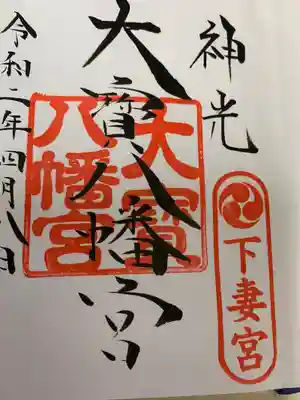 神光
下妻宮
大寳八幡宮
大寳
八幡宮
令和二年四月八日